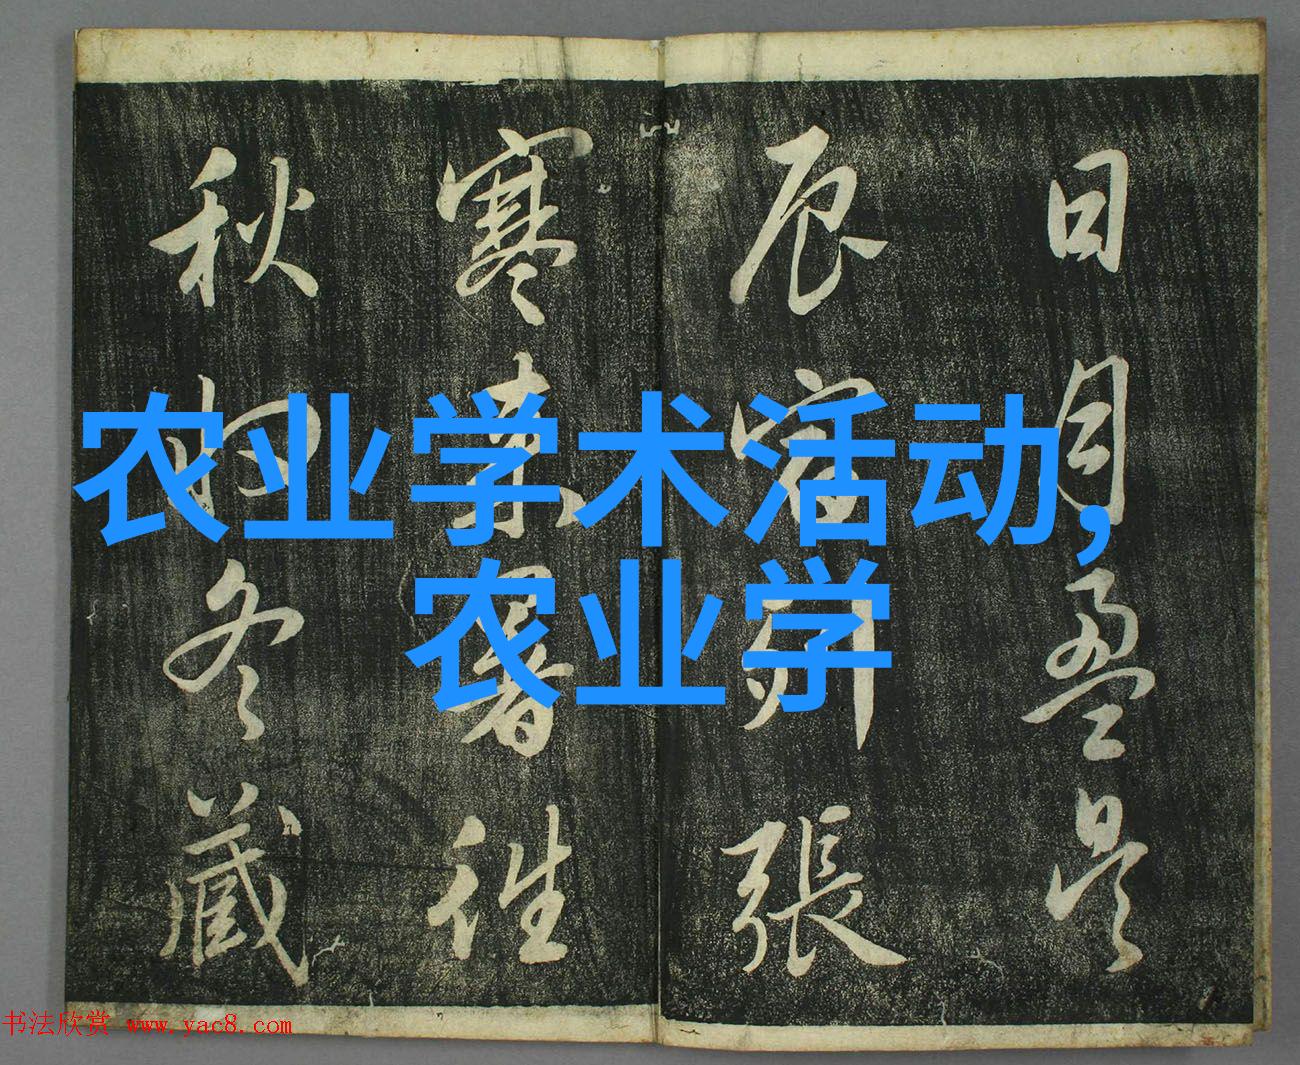 日月盈昃
辰宿列張
寒来暑往
秋收冬藏
农业学术活动,
农业学
书法欣赏 www.yac8.com